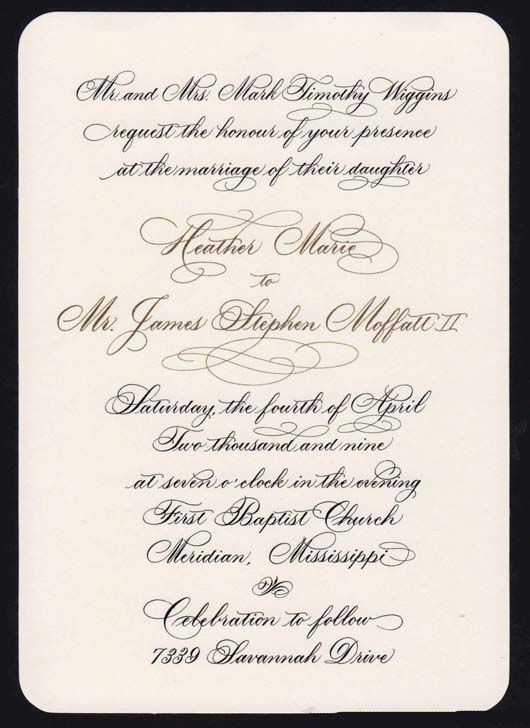 Mr. and Mrs. Mark Timothy Wiggins
request the honour of your presence
at the marriage of their daughter
Heather Marie
to
Mr. James Stephen Moffatt II
Saturday, the fourth of April
Two thousand and nine
at seven o'clock in the evening
First Baptist Church
Meridian, Mississippi
Celebration to follow
7339 Savannah Drive